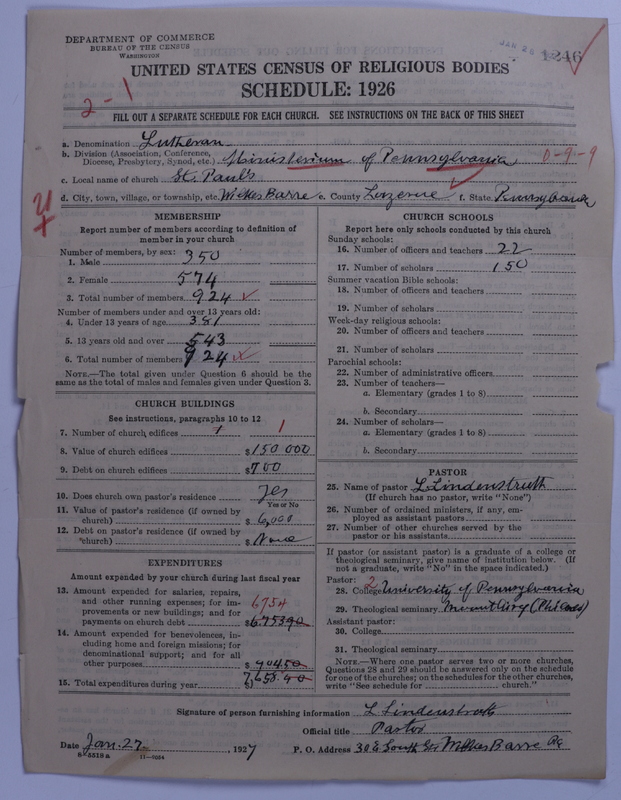 DEPARTMENT OF COMMERCE
BUREAU OF THE CENSUS
WASHINGTON
JAN 28
1246
UNITED STATES CENSUS OF RELIGIOUS BODIES
SCHEDULE: 1926
2-1
FILL OUT A SEPARATE SCHEDULE FOR EACH CHURCH. SEE INSTRUCTIONS ON THE BACK OF THIS SHEET
a. Denomination Lutheran
b. Division (Association, Conference, Diocese, Presbytery, Synod, etc.) Ministerium of Pennsylvania 0-9-9
c. Local name of church St. Paul's
d. City, town, village, or township, etc. Wilkes Barre e. County Luzerne f. State Pennsylvania
MEMBERSHIP
Report number of members according to definition of
member in your church
Number of members, by sex:
1. Male 350
2. Female 574
3. Total number of members 924
Number of members under and over 13 years old:
4. Under 13 years of age 381
5. 13 years old and over 543
6. Total number of members 924
NOTE.—The total given under Question 6 should be the
same as the total of males and females given under Question 3.
CHURCH BUILDINGS
See instructions, paragraphs 10 to 12
7. Number of church edifices 1 1
8. Value of church edifices $150 000
9. Debt on church edifices $700
10. Does church own pastor's residence Yes
Yes or No
11. Value of pastor's residence (if owned by
church) $6,000
12. Debt on pastor's residence (if owned by
church) $None
EXPENDITURES
Amount expended by your church during last fiscal year
13. Amount expended for salaries, repairs,
and other running expenses; for im-
provements or new buildings; and for
payments on church debt 6754 $675390
14. Amount expended for benevolences, in-
cluding home and foreign missions; for
denominational support; and for all
other purposes $90450
15. Total expenditures during year 7,658.40
CHURCH SCHOOLS
Report here only schools conducted by this church
Sunday schools:
16. Number of officers and teachers 22
17. Number of scholars 150
Summer vacation Bible schools:
18. Number of officers and teachers
19. Number of scholars
Week-day religious schools:
20. Number of officers and teachers
21. Number of scholars
Parochial schools:
22. Number of administrative officers
23. Number of teachers—
a. Elementary (grades 1 to 8)
b. Secondary
24. Number of scholars—
a. Elementary (grades 1 to 8)
b. Secondary
PASTOR
25. Name of pastor L Lindenstruth
(If church has no pastor, write "None")
26. Number of ordained ministers, if any, em-
ployed as assistant pastors
27. Number of other churches served by the
pastor or his assistants
If pastor (or assistant pastor) is a graduate of a college or
theological seminary, give name of institution below. (If
not a graduate, write "No" in the space indicated.)
Pastor: 2
28. College University of Pennsylvania
29. Theological seminary
Assistant pastor:
30. College
31. Theological seminary
NOTE.—Where one pastor serves two or more churches,
Questions 28 and 29 should be answered only on the schedule
for one of the churches; on the schedules for the other churches,
write "See schedule for church."
Signature of person furnishing information L Lindenstruth
Official title Pastor
Date Jan. 27, 1927 P. O. Address 30 E South St. Wilkes Barre Pa
8-5518a 11-9034